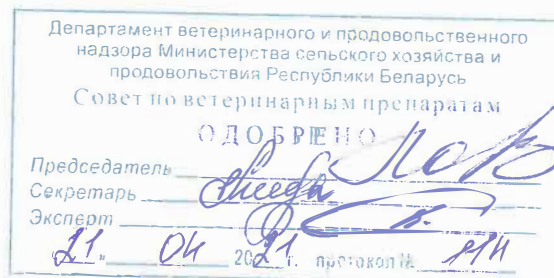 Департамент ветеринарного и продовольственного
надзора Министерства сельского хозяйства и
продовольствия Республики Беларусь
Совет по ветеринарным препаратам
ОДОБРЕНО
Председатель
Секретарь
Эксперт
21 04 2021 г. протокол № 114